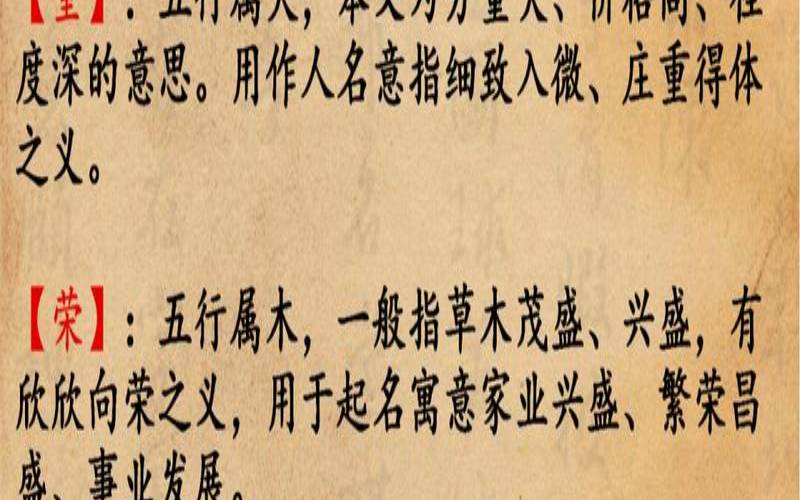 【重】：五行属火，本义为分量大、价格高、程
度深的意思。用作人名意指细致入微、庄重得体
之义。
【荣】：五行属木，一般指草木茂盛、兴盛，有
欣欣向荣之义，用于起名寓意家业兴盛、繁荣昌
盛、事业发展。